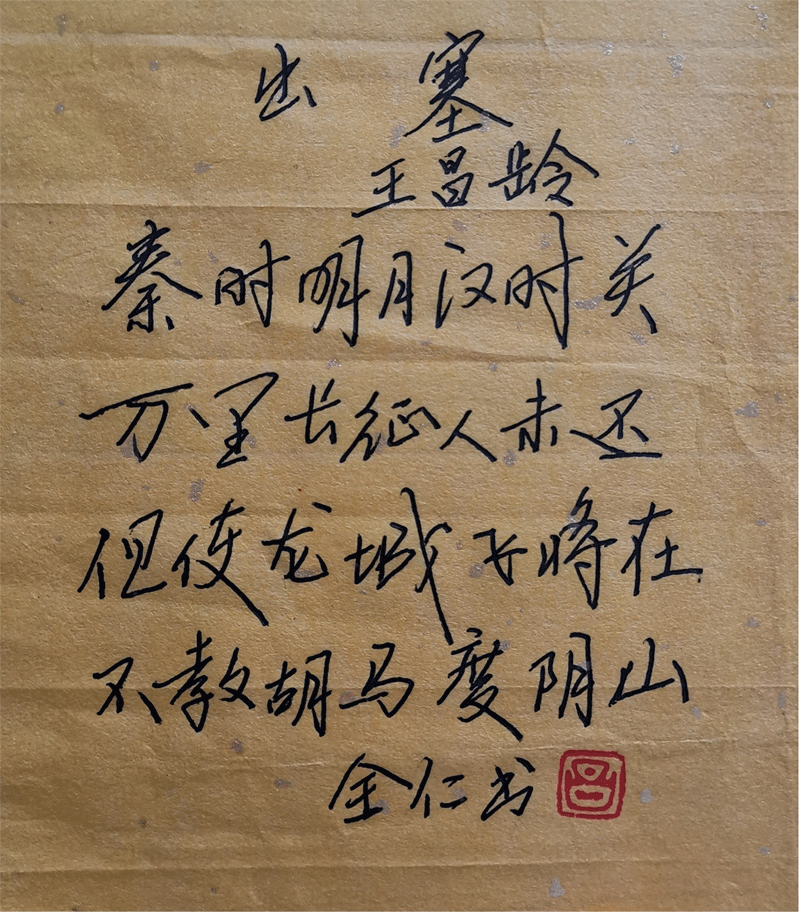 出塞
王昌龄
秦时明月汉时关
万里长征人未还
但使龙城飞将在
不教胡马度阴山
金仁书